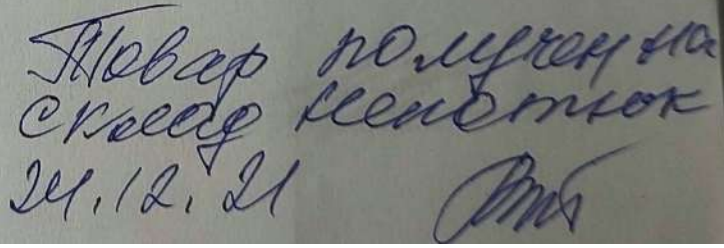 Товар получен на
склад Непотюк
24.12.21